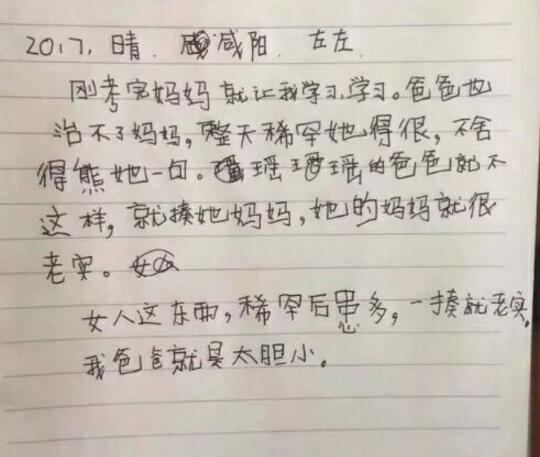 2017, 晴. 咸阳. 左左
刚考完妈妈就让我学习学习。爸爸也
治不了妈妈,整天稀罕她得很,不舍
得熊她一句。瑶瑶的爸爸就不
这样,就揍她妈妈,她的妈妈就很
老实。
女人这东西,稀罕后患多,一揍就老实,
我爸爸就是太胆小。